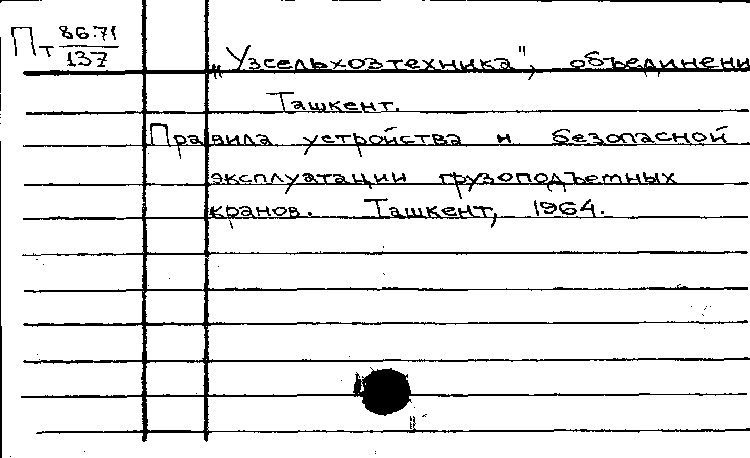 Пт 86-71
137
„Узсельхозтехника", объединени
Ташкент.
Правила устройства и безопасной
эксплуатации грузоподъемных
кранов. Ташкент, 1964.